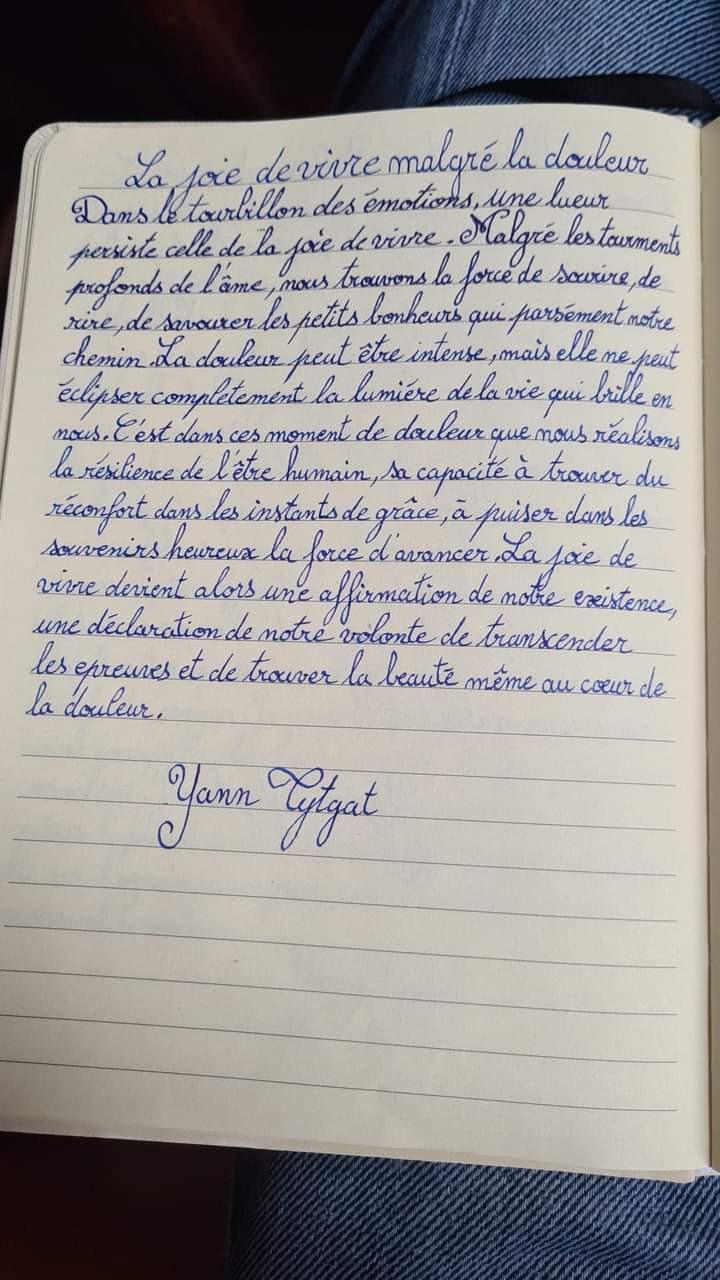 La joie de vivre malgré la douleur
Dans le tourbillon des émotions, une lueur
persiste celle de la joie de vivre. Malgré les tourments
profonds de l'âme, nous trouvons la force de sourire, de
rire, de savourer les petits bonheurs qui parsèment notre
chemin. La douleur peut être intense, mais elle ne peut
éclipser complètement la lumiére de la vie qui brille en
nous. C'est dans ces moment de douleur que nous réalisons
la résilience de l'être humain, sa capacité à trouver du
réconfort dans les instants de grâce, à puiser dans les
souvenirs heureux la force d'avancer. La joie de
vivre devient alors une affirmation de notre existence,
une déclaration de notre volonte de transcender
les epreuves et de trouver la beauté même au cœur de
la douleur.
Yann Tytgat